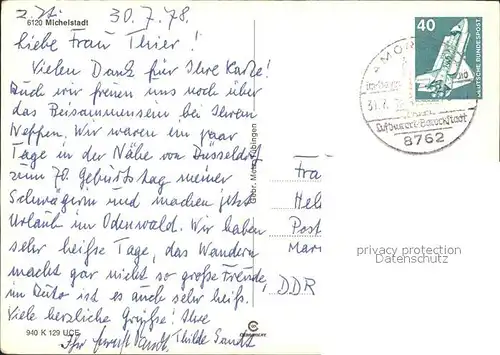 z. Zt. 30.7.78.
6120 Michelstadt
Liebe Frau Thier!
Vielen Dank für Ihre Karte!
Auch wir freuen uns noch über
das Beisammensein bei Ihrem
Neffen. Wir waren ein paar
Tage in der Nähe von Düsseldorf
zum 70. Geburtstag meiner
Schwägerin und machen jetzt
Urlaub im Odenwald. Wir haben
sehr heiße Tage, das Wandern
macht gar nicht so große Freude,
im Auto ist es auch sehr heiß.
Viele herzliche Grüße! Ihre
Thilde
940 K 129 UCE
Gebr. Metz Tübingen
40
DEUTSCHE BUNDESPOST
AMOR
31.7.
Luftkurort-Barockstadt
8762
Fra
Hel
Post
Mar
DDR
privacy protection
Datenschutz